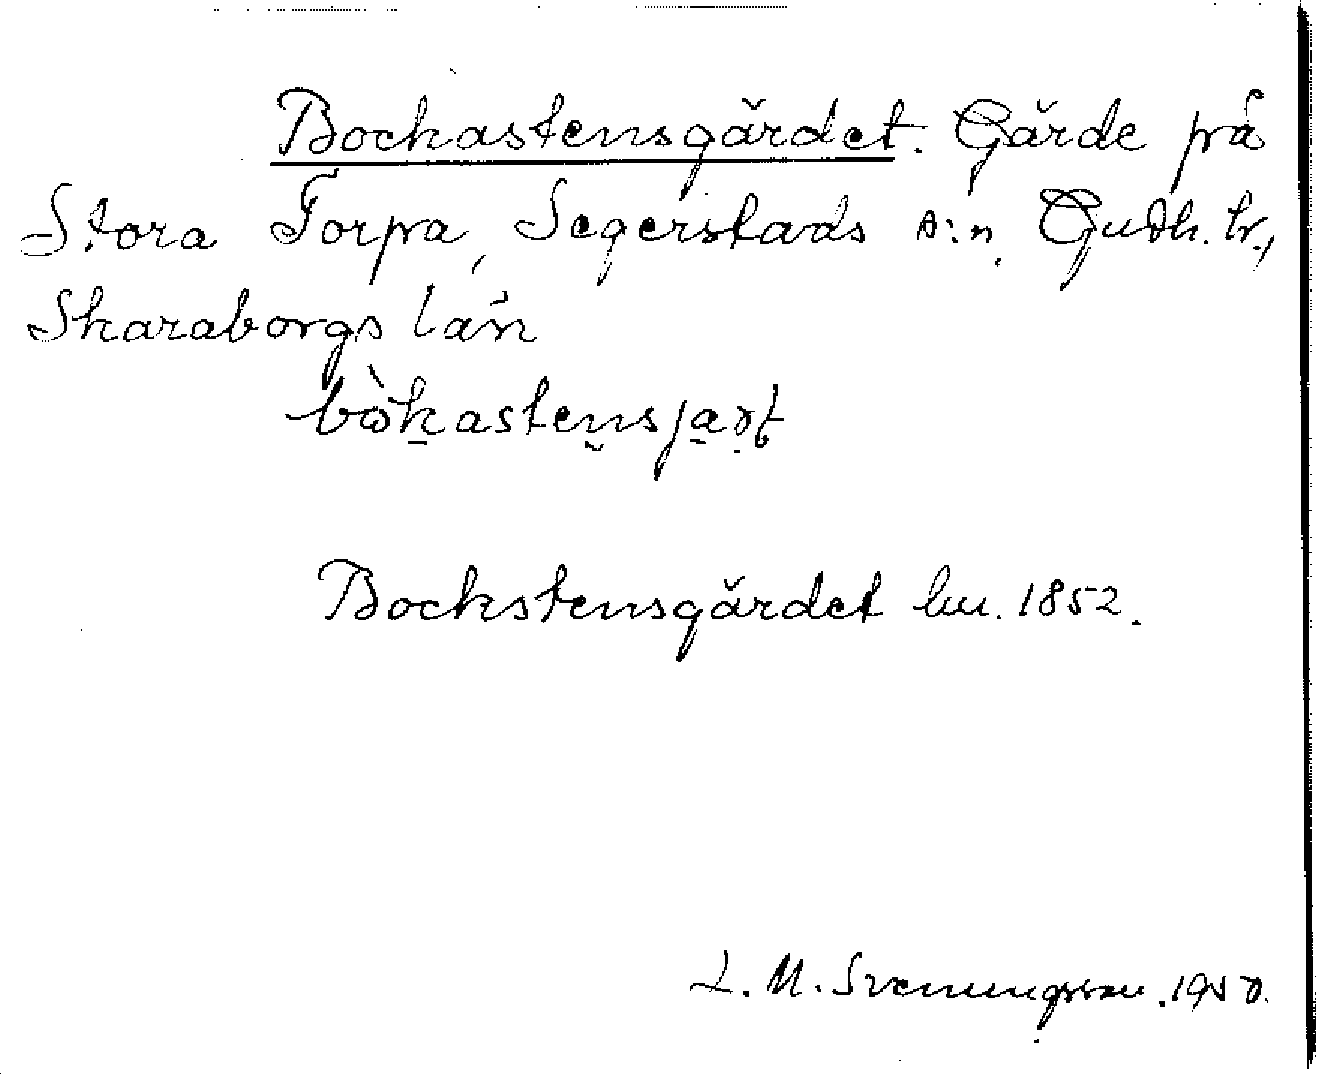 Bockastensgärdet. Gärde på
Stora Torpa, Segerstads s:n, Gudh. hr.,
Skaraborgs län
bòkastensjaṛt
Bockstensgärdet hu. 1852.
L. M. Svenungsson. 1950.